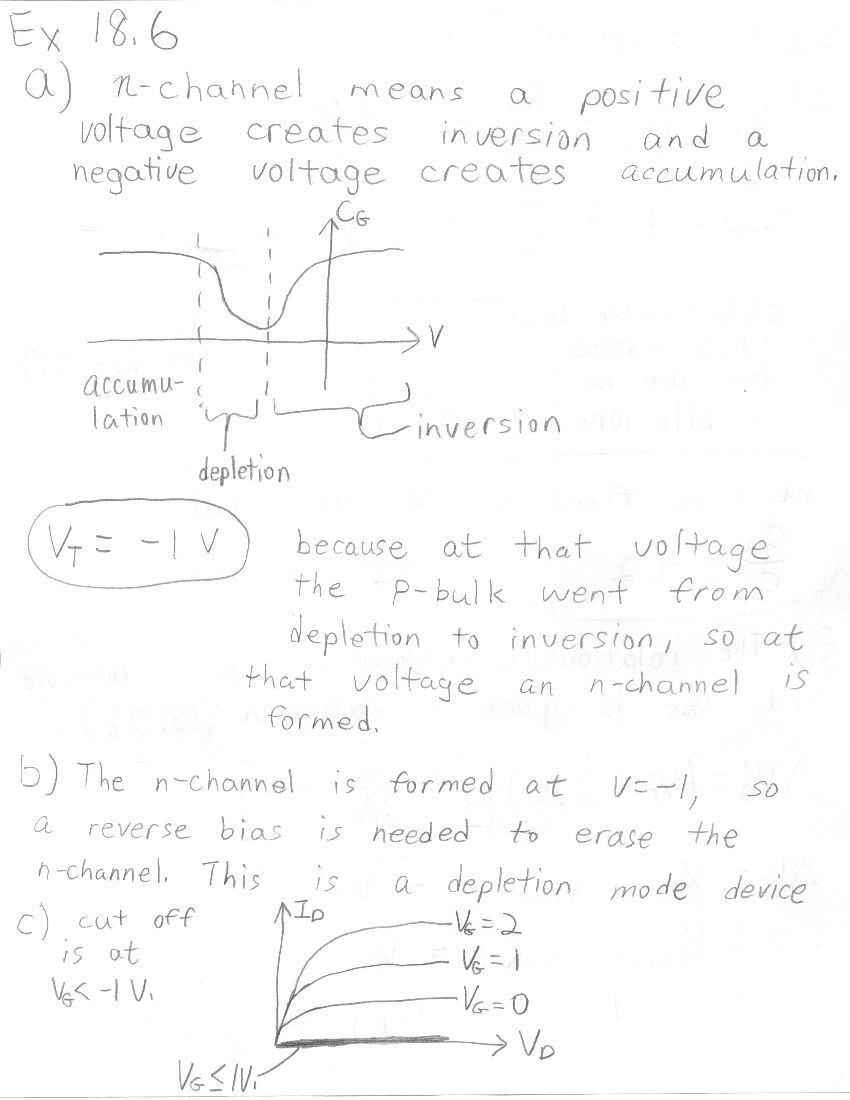 Ex 18.6
a) n-channel means a positive
voltage creates inversion and a
negative voltage creates accumulation.
C_G
V
accumu-
lation
depletion
inversion
V_T = -1 V
because at that voltage
the p-bulk went from
depletion to inversion, so at
that voltage an n-channel is
formed.
b) The n-channel is formed at V=-1, so
a reverse bias is needed to erase the
n-channel. This is a depletion mode device
c) cut off
is at
V_G< -1 V.
I_D
V_G=2
V_G=1
V_G=0
V_D
V_G≤1V.